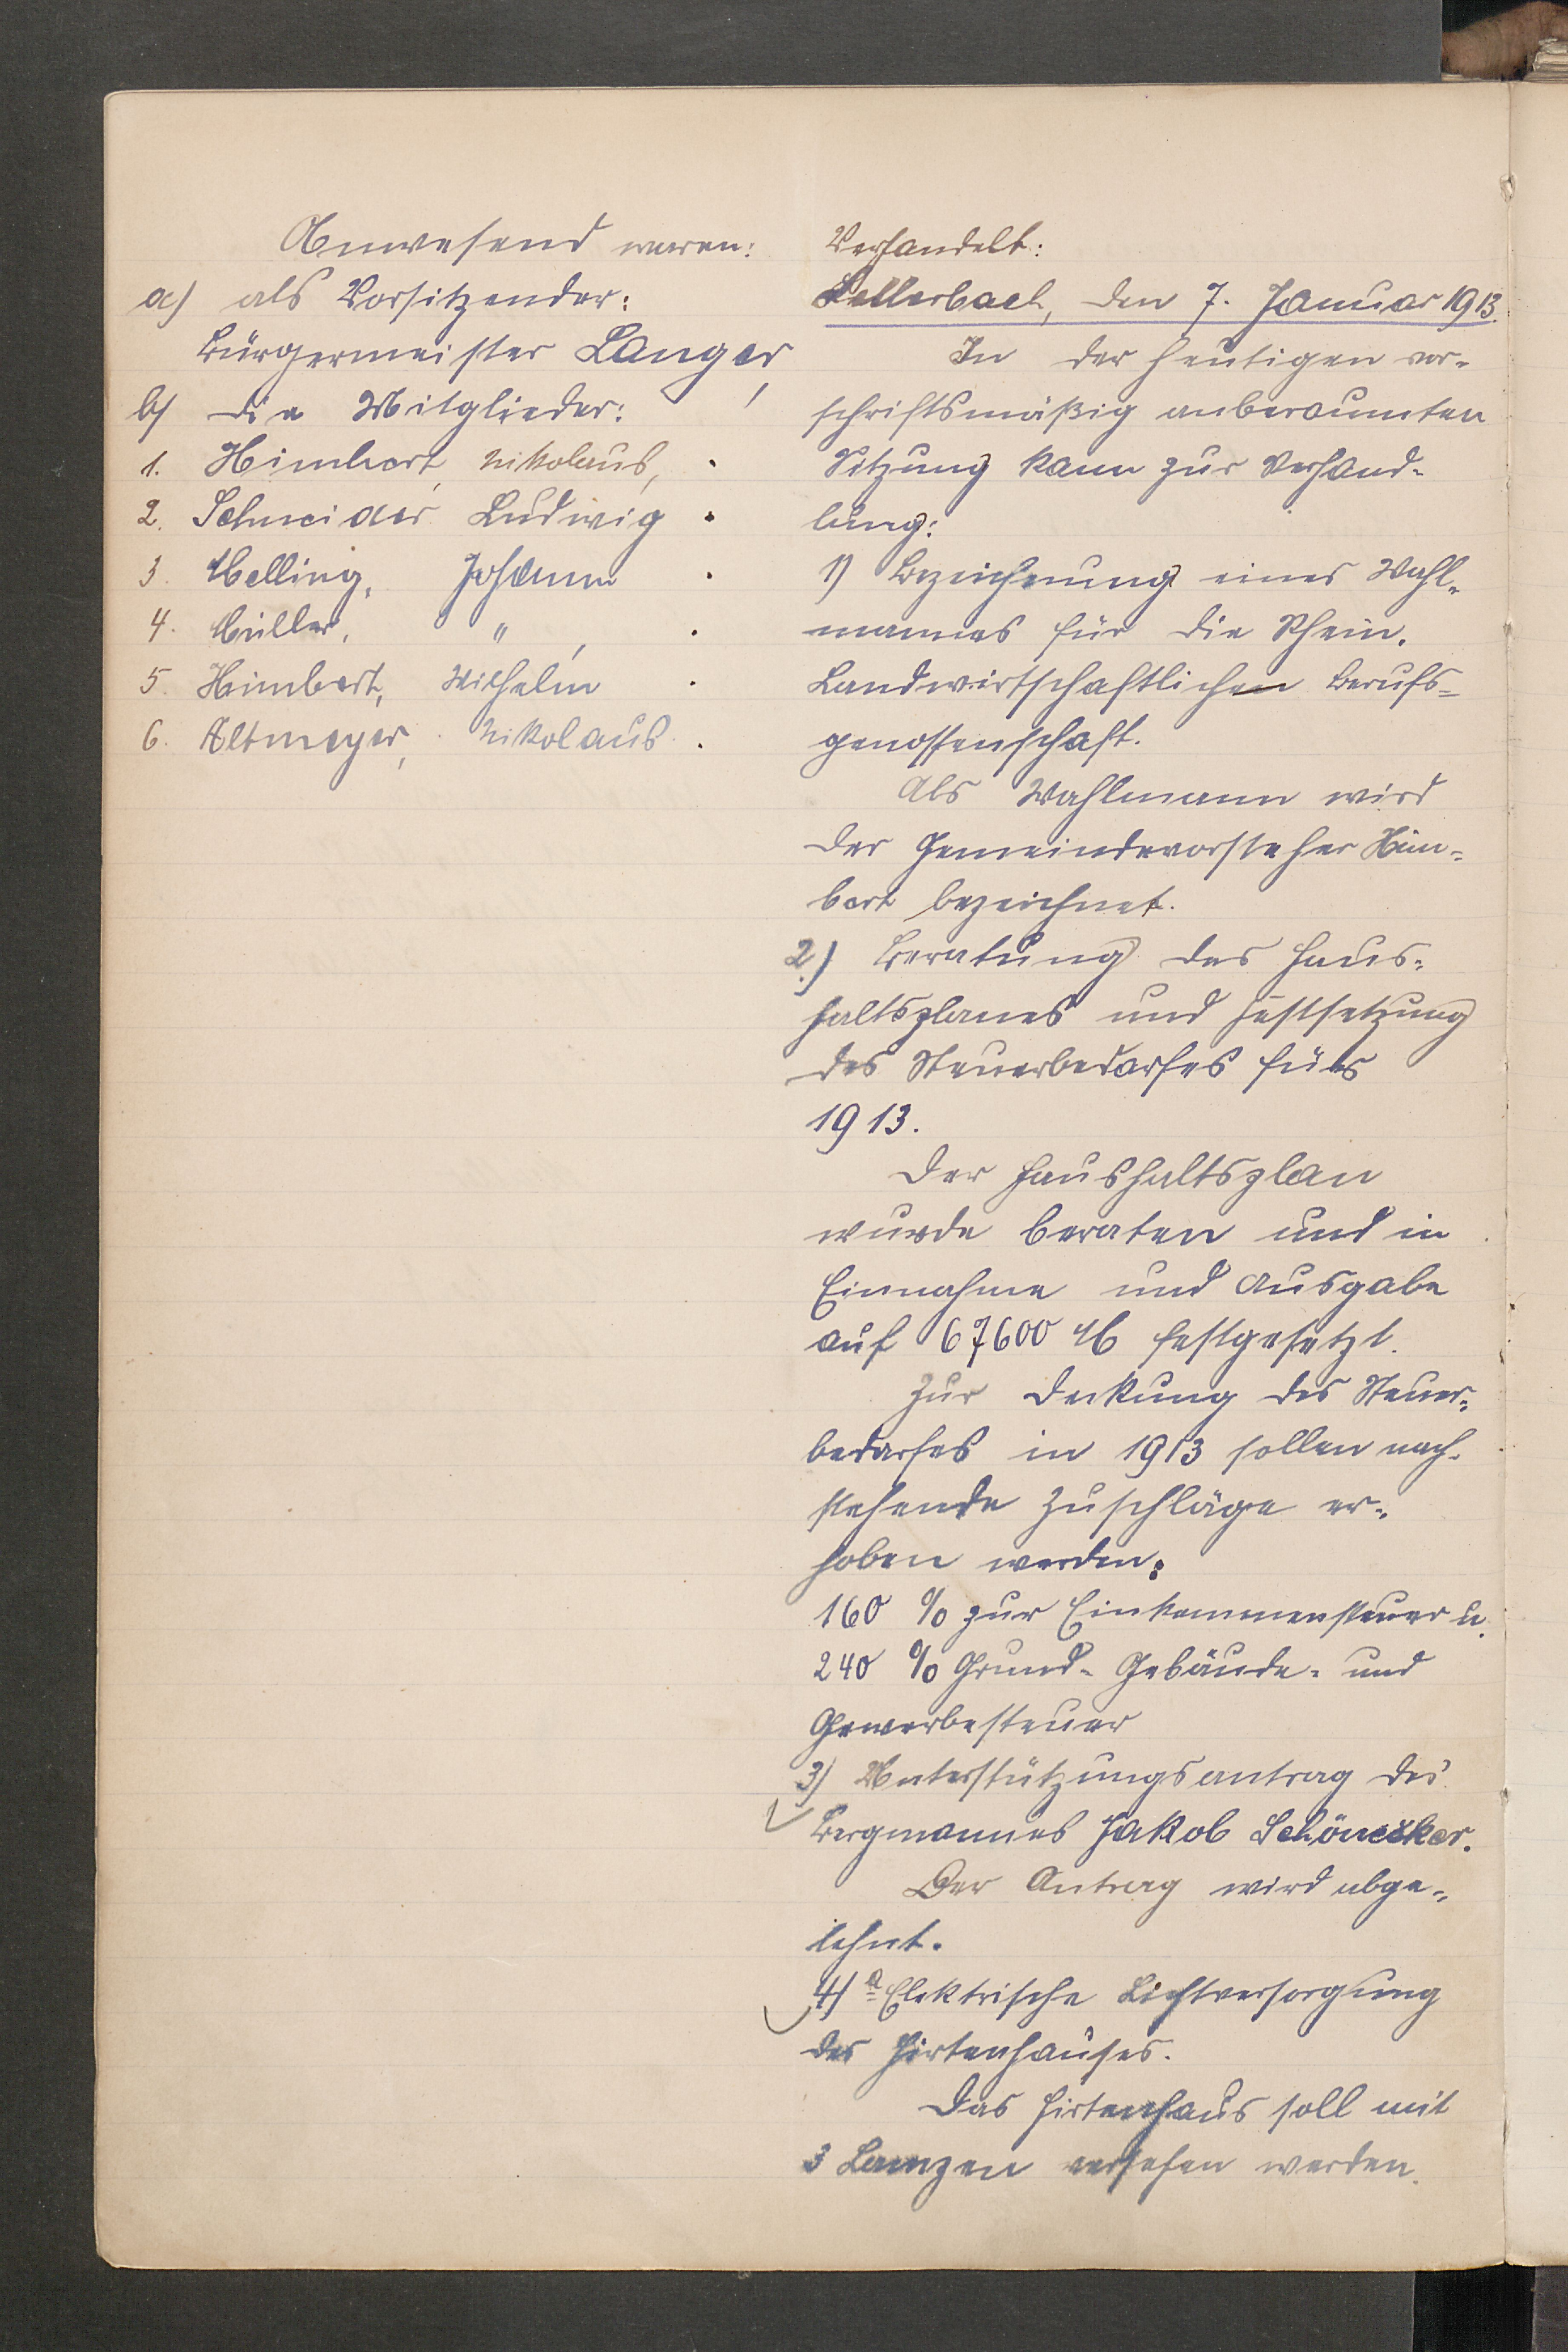 Anwesend waren:
a) als Vorsitzender:
Bürgermeister Langer,
b) die Mitglieder:
1. Himbert, Nikolaus,
2. Schneider Ludwig
3. Melling, Johann
4. Müller, " ,
5. Himbert, Wilhelm
6. Altmeyer, Nikolaus
Verhandelt:
Sellerbach, den 7. Januar 1913.
In der heutigen vor-
schriftsmäßig anberaumten
Sitzung kam zur Verhand-
lung:
1) Bezeichnung eines Wahl-
mannes für die Rhein.
Landwirtschaftlichen Berufs-
genossenschaft.
Als Wahlmann wird
der Gemeindevorsteher Him-
bert bezeichnet.
2.) Beratung des Haus-
haltsplanes und Festsetzung
des Steuerbedarfes für
1913.
Der Haushaltsplan
wurde beraten und in
Einnahme und Ausgabe
auf 67600 M festgesetzt.
Zur Deckung des Steuer-
bedarfes in 1913 sollen nach-
stehende Zuschläge er-
hoben werden:
160 % zur Einkommensteuer u.
240 % Grund- Gebäude- und
Gewerbesteuer
3) Unterstützungsantrag des
Bergmannes Jakob Schönecker.
Der Antrag wird abge-
lehnt.
4) a Elektrische Lichtversorgung
des Hirtenhauses.
Das Hirtenhaus soll mit
3 Lampen versehen werden.